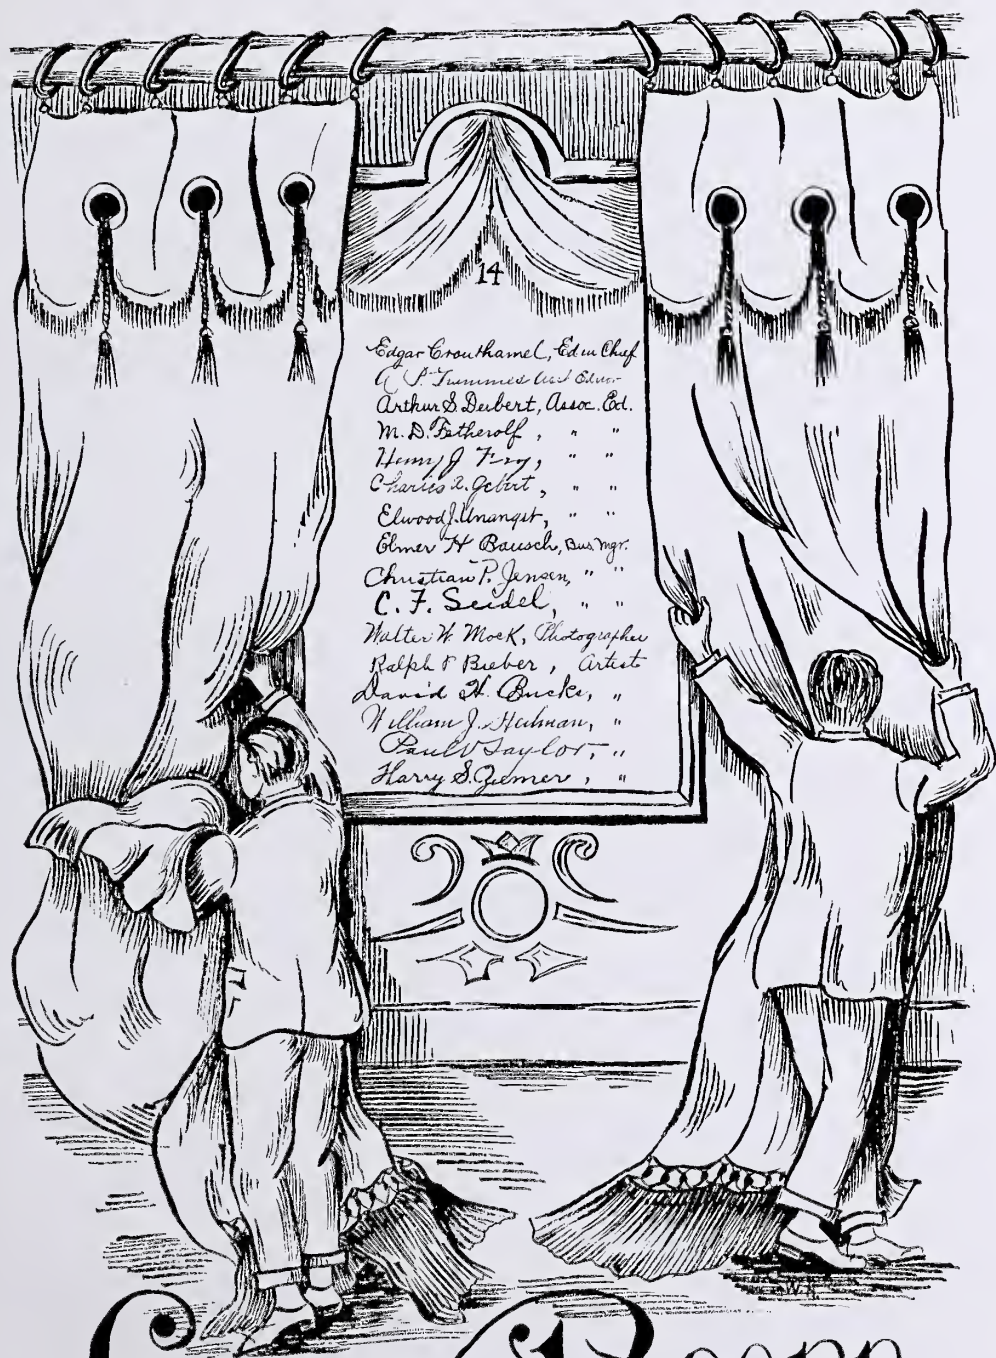 14
Edgar Crouthamel, Ed in Chief
A. P. Asst Editor
Arthur S. Deibert, Assoc. Ed.
M. D. Fetherolf, " "
Henry J. Fry, " "
Charles A. Gebert, " "
Elwood J. Unangst, " "
Elmer H Bausch, Bus. Mgr.
Christian P. Jensen, " "
C. F. Seidel, " "
Walter W. Mock, Photographer
Ralph F Bieber, Artist
David H. Bucks, "
William J. Heilman, "
Paul V Taylor, "
Harry S. Ziemer, "